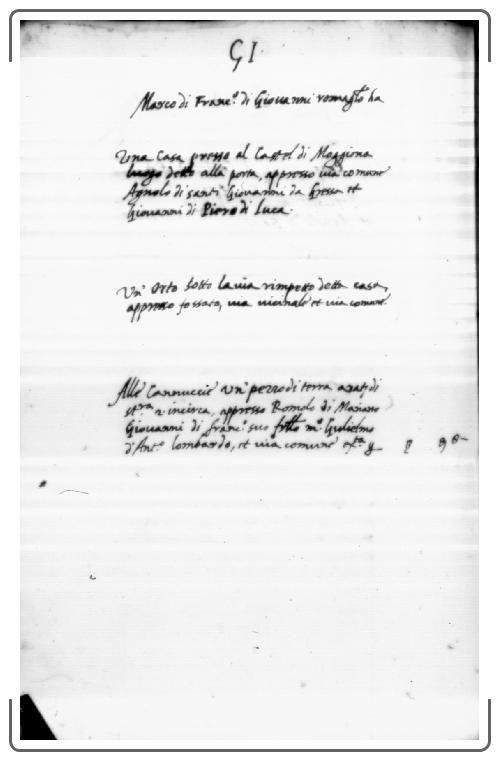 51
Marco di Franc.º di Giovanni romag.lo ha
Una Casa presso al Castel di Moggiona
luogo detto alla porta, appresso via comune
Agnolo di santi Giovanni da Gressa et
Giovanni di Piero di Luca.
Un' orto sotto la via rimpetto detta casa,
appresso fossato, via vicinale et via comune.
Alle Cannuccie un' pezzo di terra di
st.ra 2 incirca, appresso Romolo di Mariano
Giovanni di franc.º suo frllo m.º Gulielmo
d'Ant.º lombardo, et via comune